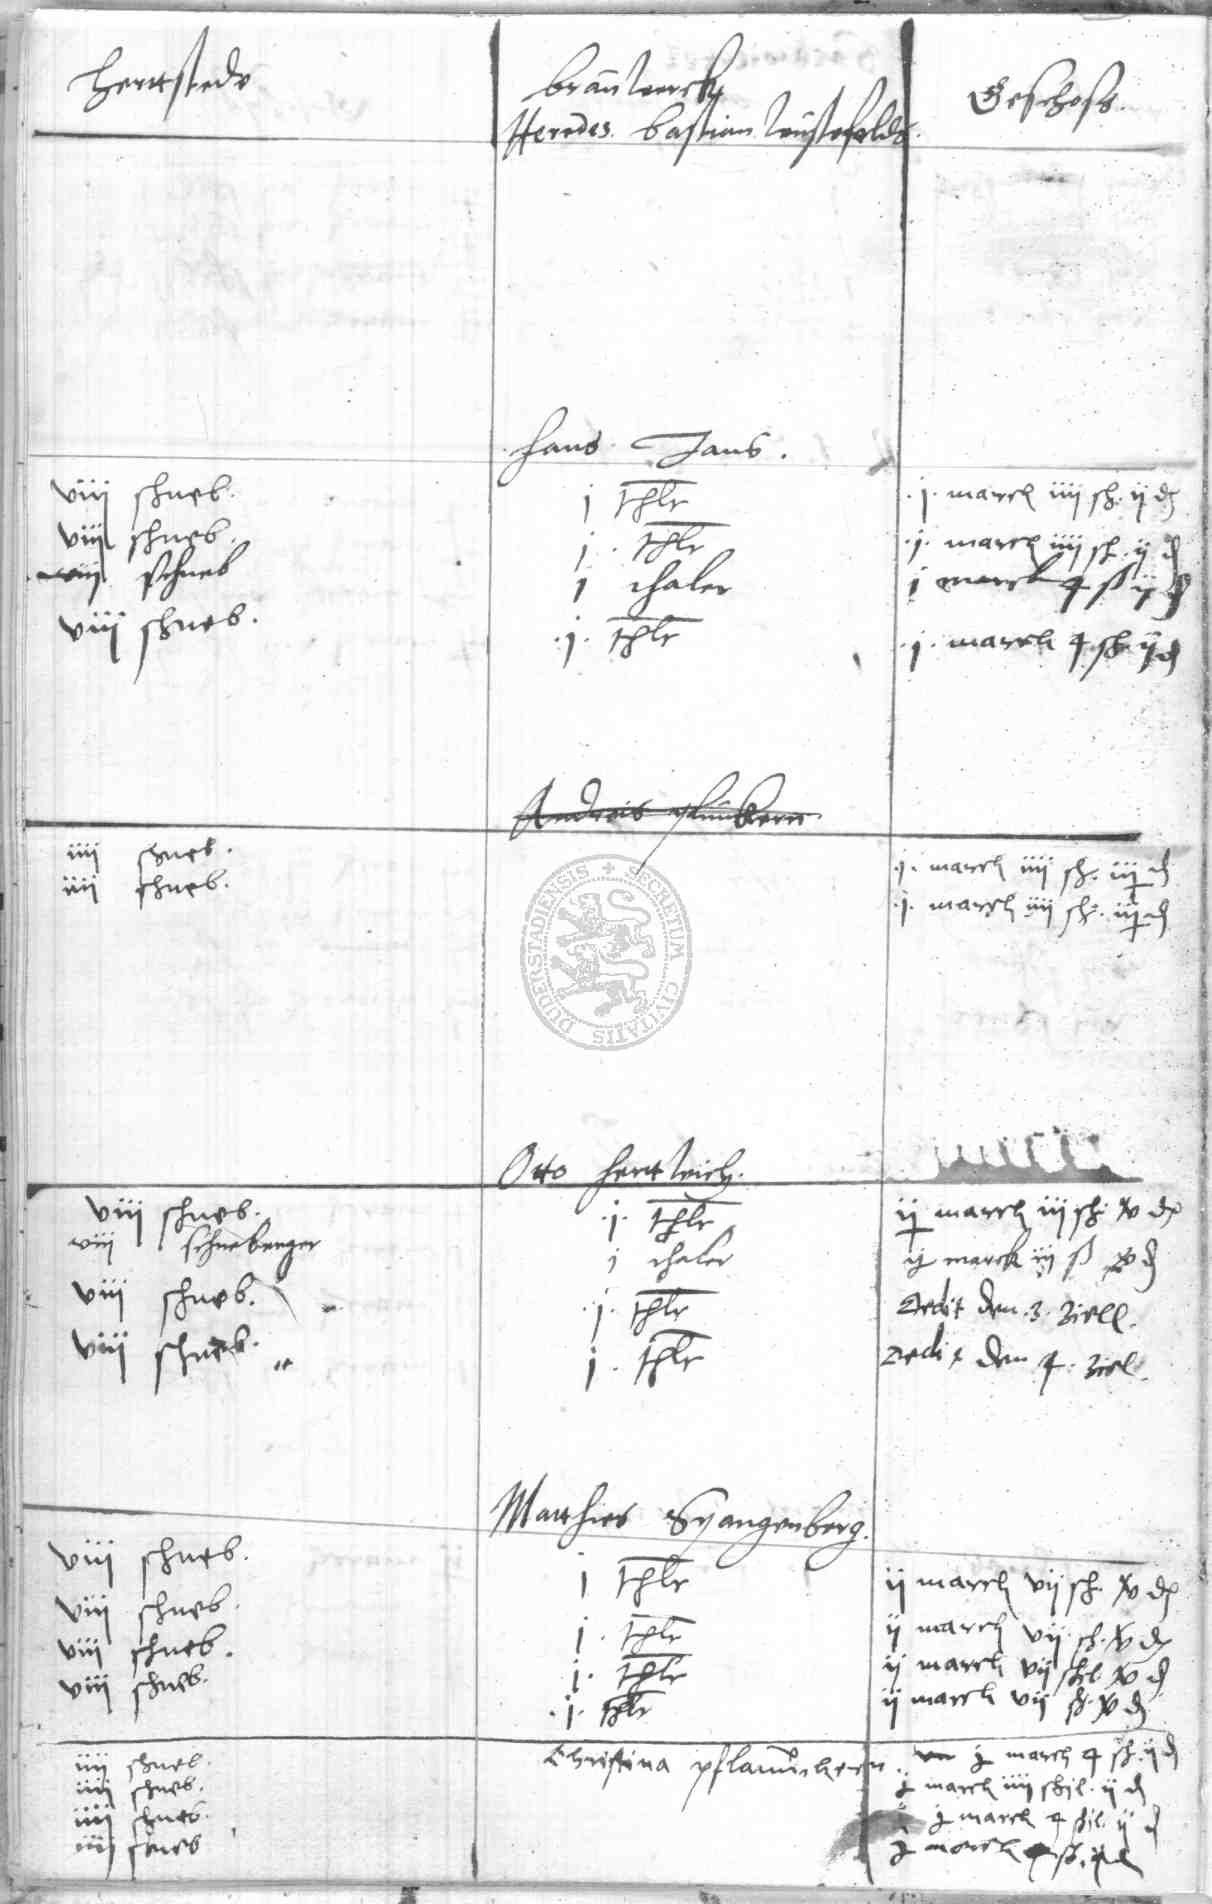 Herttstede
Brauwerck
Geschoss.
Heredes Bastian Wustefeldt.
Hans Jans.
viii schneb. j thlr .j. marck iiij sch. ij d
viii schneb. j. thlr .j. marck iiij sch. ij d
viii schneb i thaler i marck 4 ß ij d
viii schneb. .j. thlr .j. marck 4 sch. ij d
Andreis
iiij schneb. .j. marck iiij sch. iij d
iiij schneb. .j. marck iiij sch. iij d
SECRETUM CIVITATIS DUDERSTADIENSIS
Otto Herttwich.
viii schneb. .j. thlr ij marck iij sch. xv d
viii schneberger i thaler ij marck iij ß xv d
viii schneb. .j. thlr Dedit den .3. Ziell.
viii schneb. j. thlr Dedit den 4. Ziel.
Matthies Spangenberg.
viii schneb. j thlr ij marck vij sch. xv d
viii schneb. j. thlr ij marck vij sch. xv d
viii schneb. j. thlr ij marck vij schl. xv d
viii schneb. .j. thlr ij marck vij sch. xv d
Christina
iiij schneb. j marck 4 sch. ij d
iiij schneb. j marck iiij schil. ij d
iiij schneb. j marck 4 schil. ij d
iiij schneb j marck 4 sch. ij d